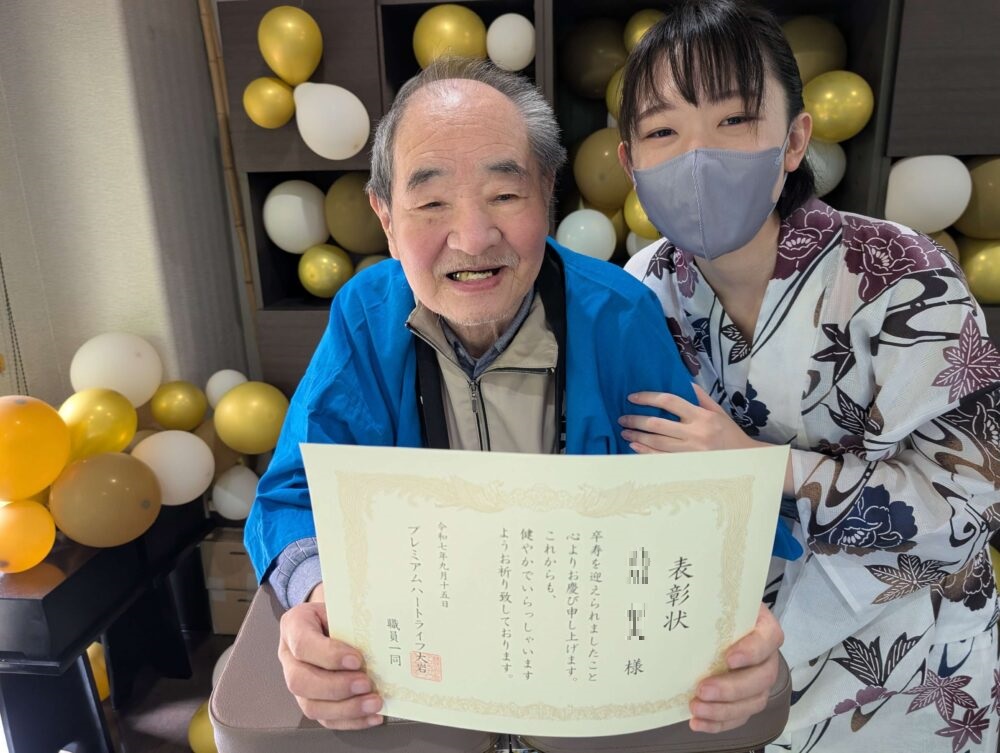 表彰状
様
卒寿を迎えられましたこと
心よりお慶び申し上げます。
これからも、
健やかでいらっしゃいます
ようお祈り致しております。
令和七年九月十五日
プレミアムハートライフ大岩
職員一同